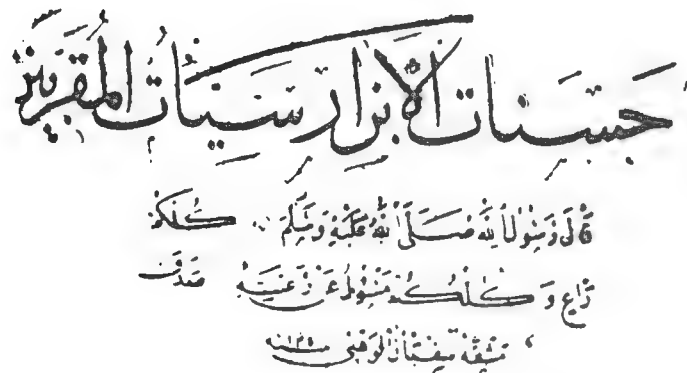 حسنات الأبرار سيئات المقربين
قال رسول الله صلى الله عليه وسلم كلكم
راع وكلكم مسئول عن رعيته صدق
مشقه سفيان الوهبي سنه